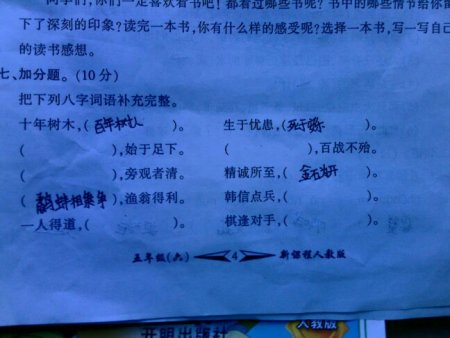 同学们,你们一定喜欢看书吧!都看过哪些书呢?书中的哪些情节给你留
下了深刻的印象?读完一本书,你有什么样的感受呢?选择一本书,写一写自己
的读书感想。
七、加分题。(10分)
把下列八字词语补充完整。
十年树木,(百年树人)。 生于忧患,(死于安乐)。
( ),始于足下。 ( ),百战不殆。
( ),旁观者清。 精诚所至,(金石为开)。
(鹬蚌相争),渔翁得利。 韩信点兵,( )。
一人得道,( )。 棋逢对手,( )。
五年级(六) 4 新课程人教版
开明出版社 人教版